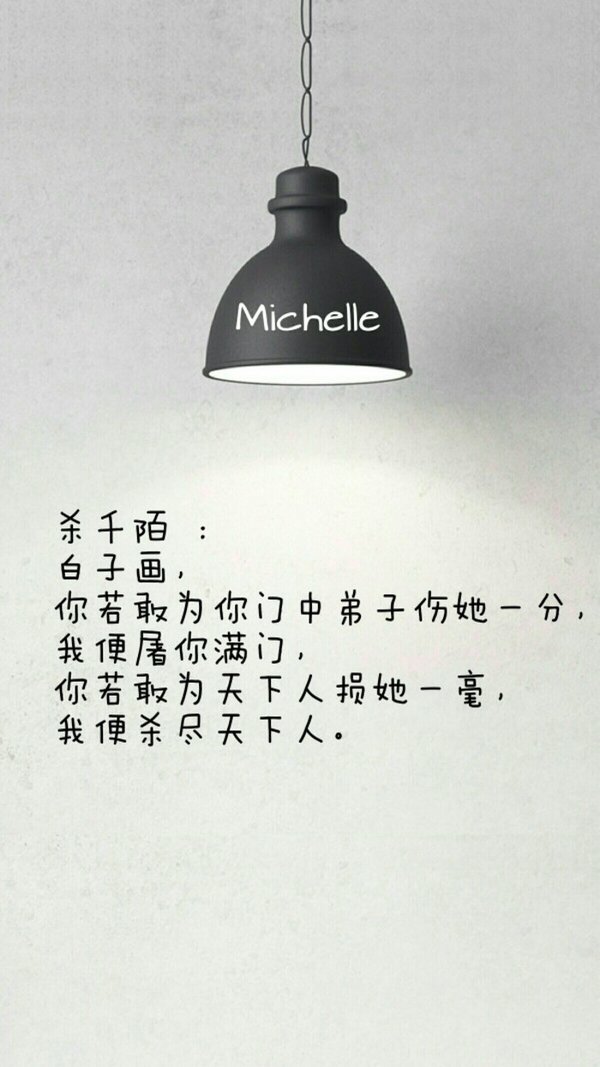 Michelle
杀千陌 :
白子画,
你若敢为你门中弟子伤她一分,
我便屠你满门,
你若敢为天下人损她一毫,
我便杀尽天下人。